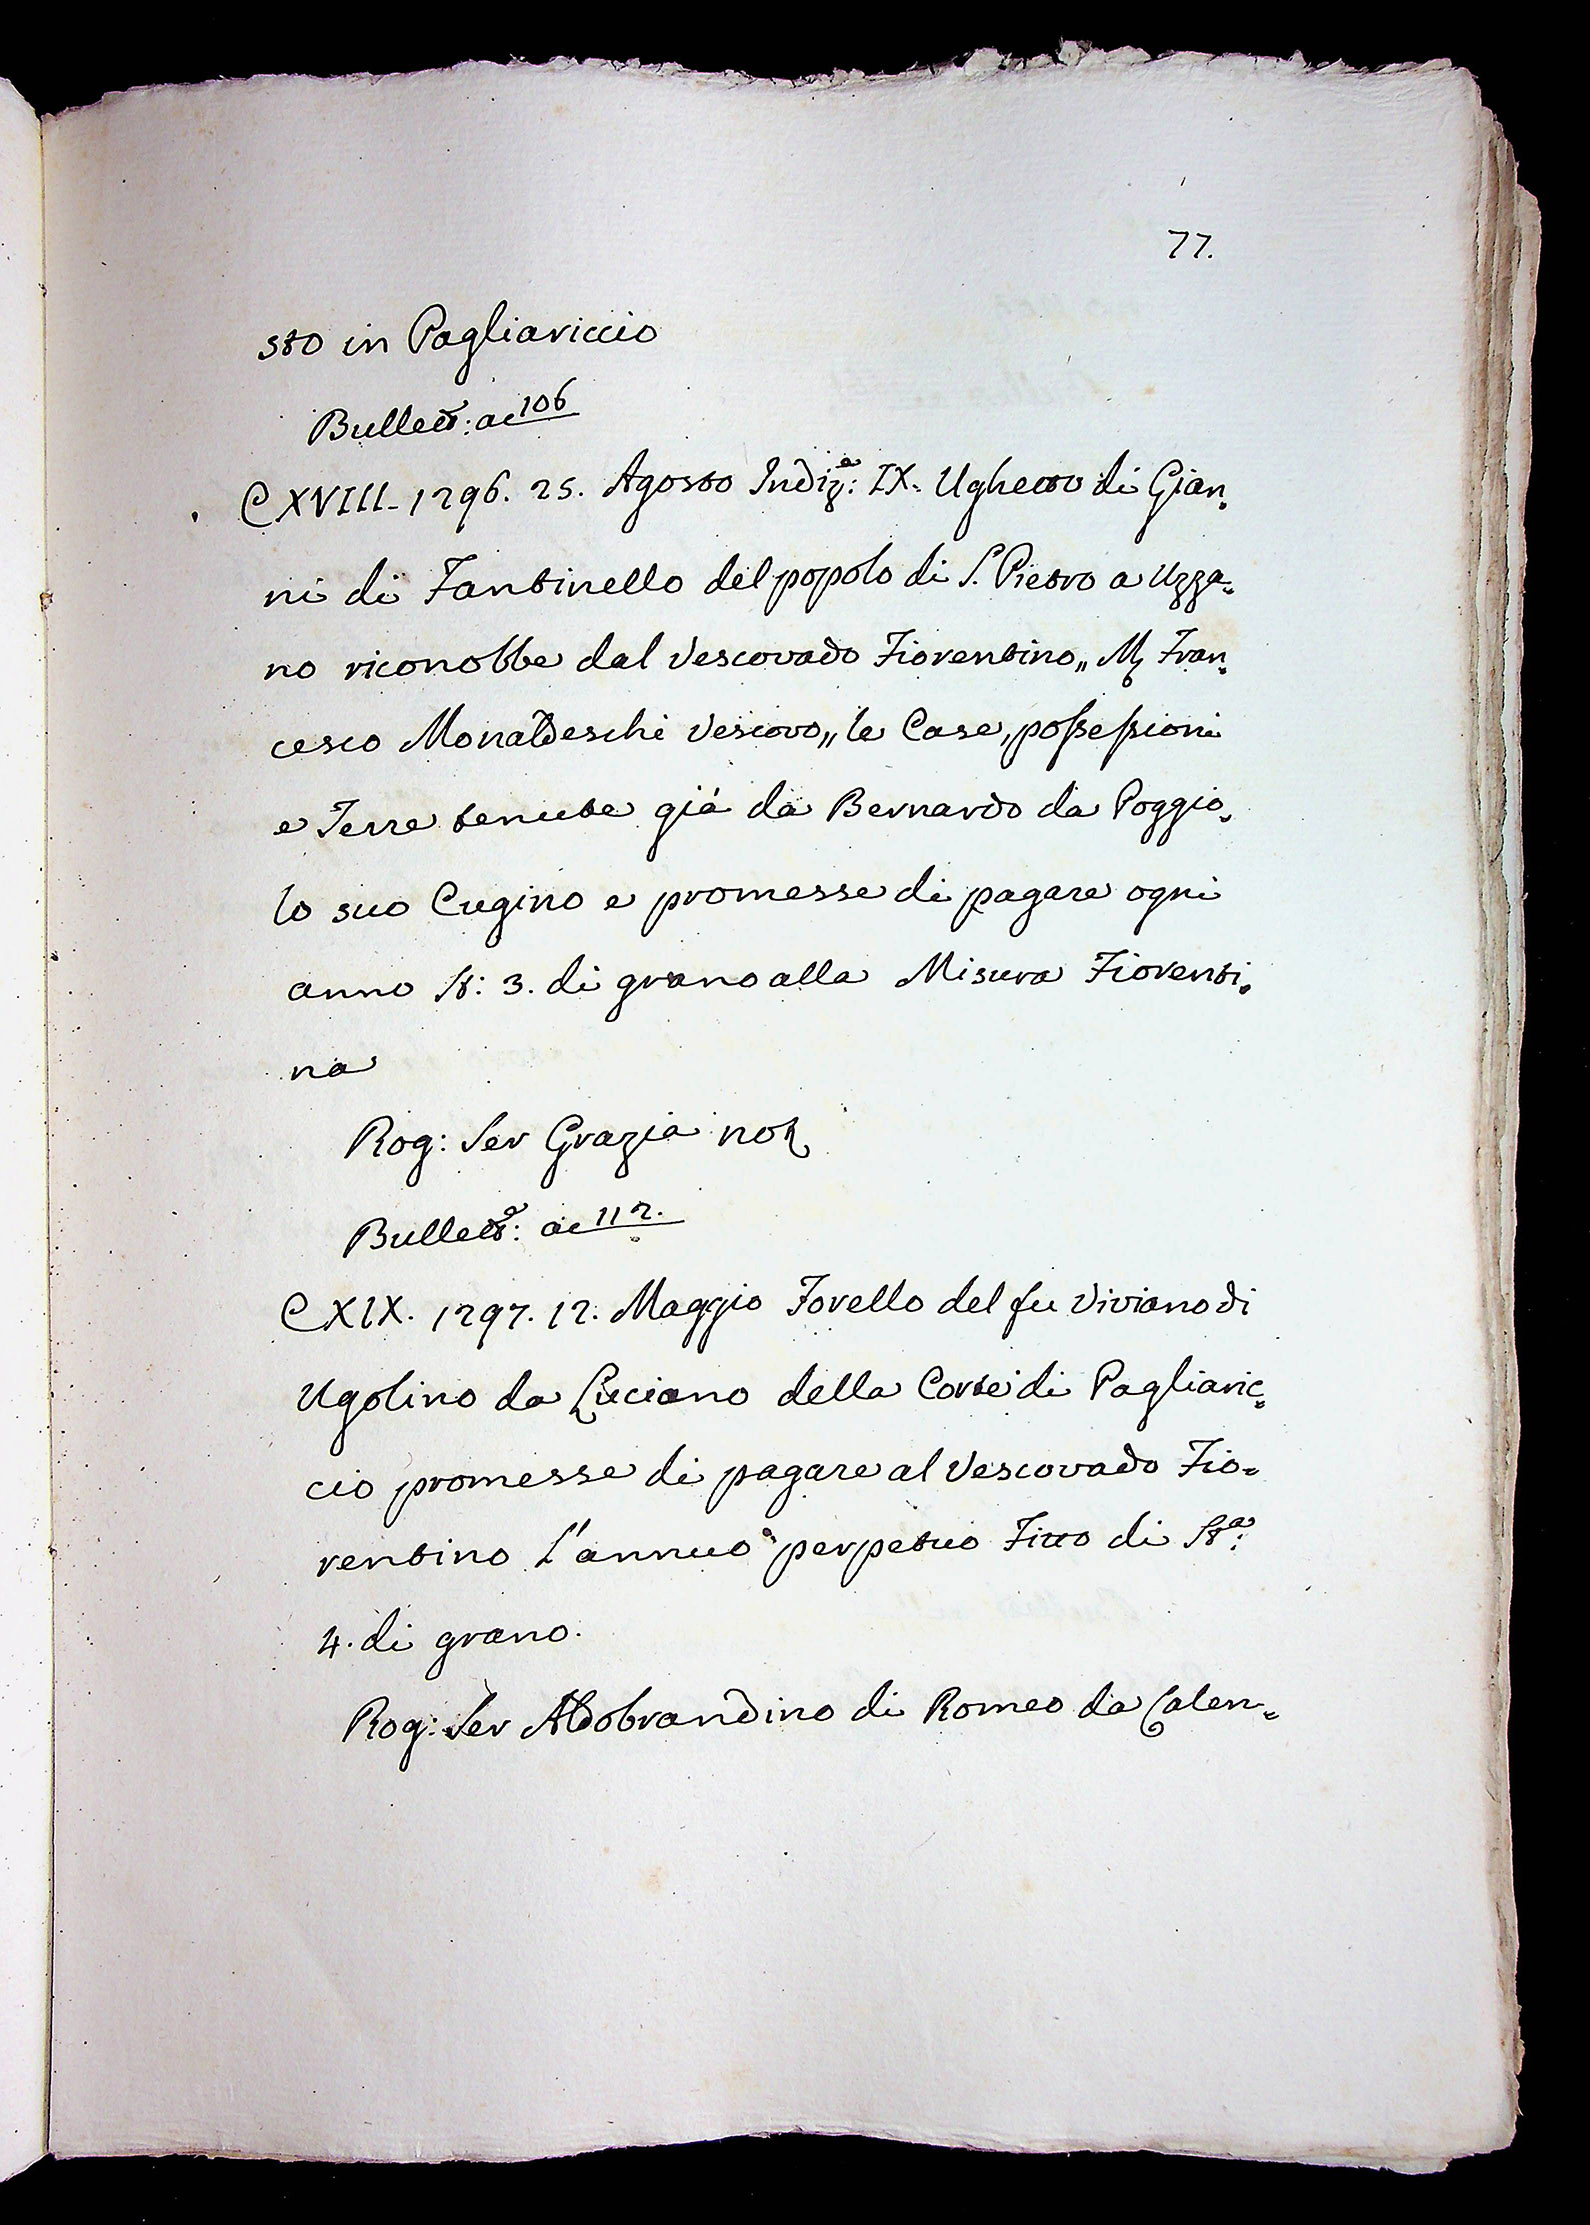 77.
sto in Pagliariccio
Bullett: ac 106
CXVIII. 1296. 25. Agosto Indiz:ᵉ IX. Ughetto di Gian=
ni di Fantinello del popolo di S. Pietro a Uzza=
no riconobbe dal Vescovado Fiorentino,, M Fran=
cesco Monaldeschi Vescovo,, le Case, possessioni
e Terre tenute già da Bernardo da Poggio=
lo suo Cugino e promesse di pagare ogni
anno St: 3. di grano alla Misura Fiorenti=
na
Rog: Ser Grazia not
Bullettᵃ: ac 112.
CXIX. 1297. 12. Maggio Forello del fu Viviano di
Ugolino da Luciano della Corte di Pagliaric=
cio promesse di pagare al Vescovado Fio=
rentino l'annuo perpetuo Fitto di Stᵃ:
4. di grano.
Rog: Ser Aldobrandino di Romeo da Calen=